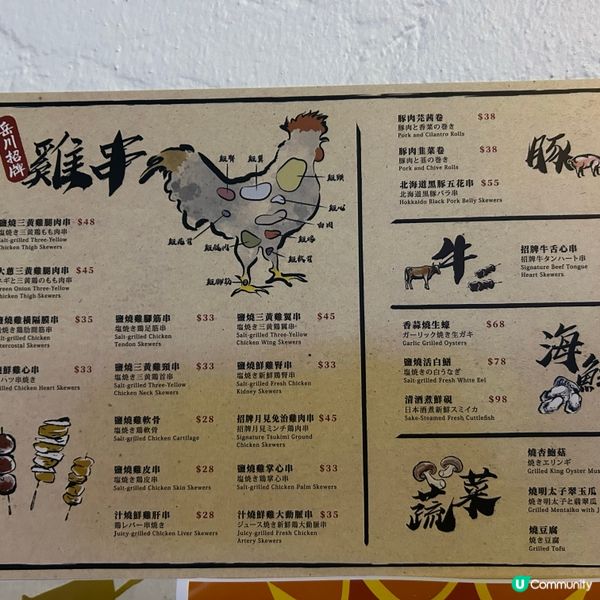 岳川招牌
雞串
雞腎
雞翼
雞頸
雞心
白肉
雞腿
鹽燒三黃雞腿肉串 $48
塩焼き三黄鶏もも肉串
Salt-grilled Three-Yellow
Chicken Thigh Skewers
大蔥三黃雞腿肉串 $45
ネギと三黄鶏のもも肉串
Green Onion Three-Yellow
Chicken Thigh Skewers
鹽燒雞橫隔膜串 $35
焼き鶏肋間筋串
Salt-grilled Chicken
Intercostal Skewers
鮮雞心串 $33
ハツ串焼き
Salt-grilled Chicken Heart Skewers
鹽燒雞腳筋串 $33
塩焼き鶏足筋串
Salt-grilled Chicken
Tendon Skewers
鹽燒三黃雞頸串 $33
塩焼き三黄鶏首串
Salt-grilled Three-Yellow
Chicken Neck Skewers
鹽燒雞軟骨 $28
塩焼き鶏軟骨
Salt-grilled Chicken Cartilage
鹽燒雞皮串 $28
塩焼き鶏皮串
Salt-grilled Chicken Skin Skewers
汁燒鮮雞肝串 $28
鶏レバー串焼き
Juicy-grilled Chicken Liver Skewers
鹽燒三黃雞翼串 $45
塩焼き三黄鶏翼串
Salt-grilled Three-Yellow
Chicken Wing Skewers
鹽燒鮮雞腎串 $33
塩焼き新鮮鶏腎串
Salt-grilled Fresh Chicken
Kidney Skewers
招牌月見免治雞肉串 $45
招牌月見ミンチ鶏肉串
Signature Tsukimi Ground
Chicken Skewers
鹽燒雞掌心串 $33
塩焼き鶏掌心串
Salt-grilled Chicken Palm Skewers
汁燒鮮雞大動脈串 $35
ジュース焼き新鮮鶏大動脈串
Juicy-grilled Fresh Chicken
Artery Skewers
豚
豚肉芫茜卷 $38
豚肉と香菜の巻き
Pork and Cilantro Rolls
豚肉韭菜卷 $38
豚肉と韮の巻き
Pork and Chive Rolls
北海道黑豚五花串 $55
北海道黒豚バラ串
Hokkaido Black Pork Belly Skewers
牛
招牌牛舌心串
招牌牛タンハート串
Signature Beef Tongue
Heart Skewers
海鮮
香蒜燒生蠔 $68
ガーリック焼き生ガキ
Garlic Grilled Oysters
鹽燒活白鱔 $78
塩焼きの白うなぎ
Salt-grilled Fresh White Eel
清酒煮鮮硯 $98
日本酒煮新鮮スミイカ
Sake-Steamed Fresh Cuttlefish
蔬菜
燒杏鮑菇
焼きエリンギ
Grilled King Oyster Mus
燒明太子翠玉瓜
焼き明太子と翡翠瓜
Grilled Mentaiko with J
燒豆腐
焼き豆腐
Grilled Tofu
U Community